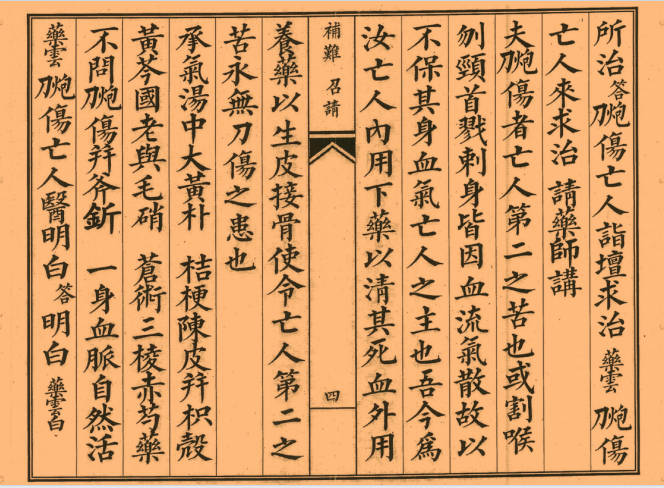 所治 答 刀炮傷亡人詣壇求治 藥雲 刀炮傷
亡人來求治 請藥師講
夫刀炮傷者亡人第二之苦也或割喉
刎頸首戮刺身皆因血流氣散故以
不保其身血氣亡人之主也吾今爲
汝亡人內用下藥以清其死血外用
補難 召請 四
養藥以生皮接骨使令亡人第二之
苦永無刀傷之患也
承氣湯中大黃朴 桔梗陳皮幷枳殼
黃芩國老與毛硝 蒼術三棱赤芍藥
不問刀炮傷幷斧釿 一身血脈自然活
藥雲 刀炮傷亡人醫明白 答 明白 藥雲白